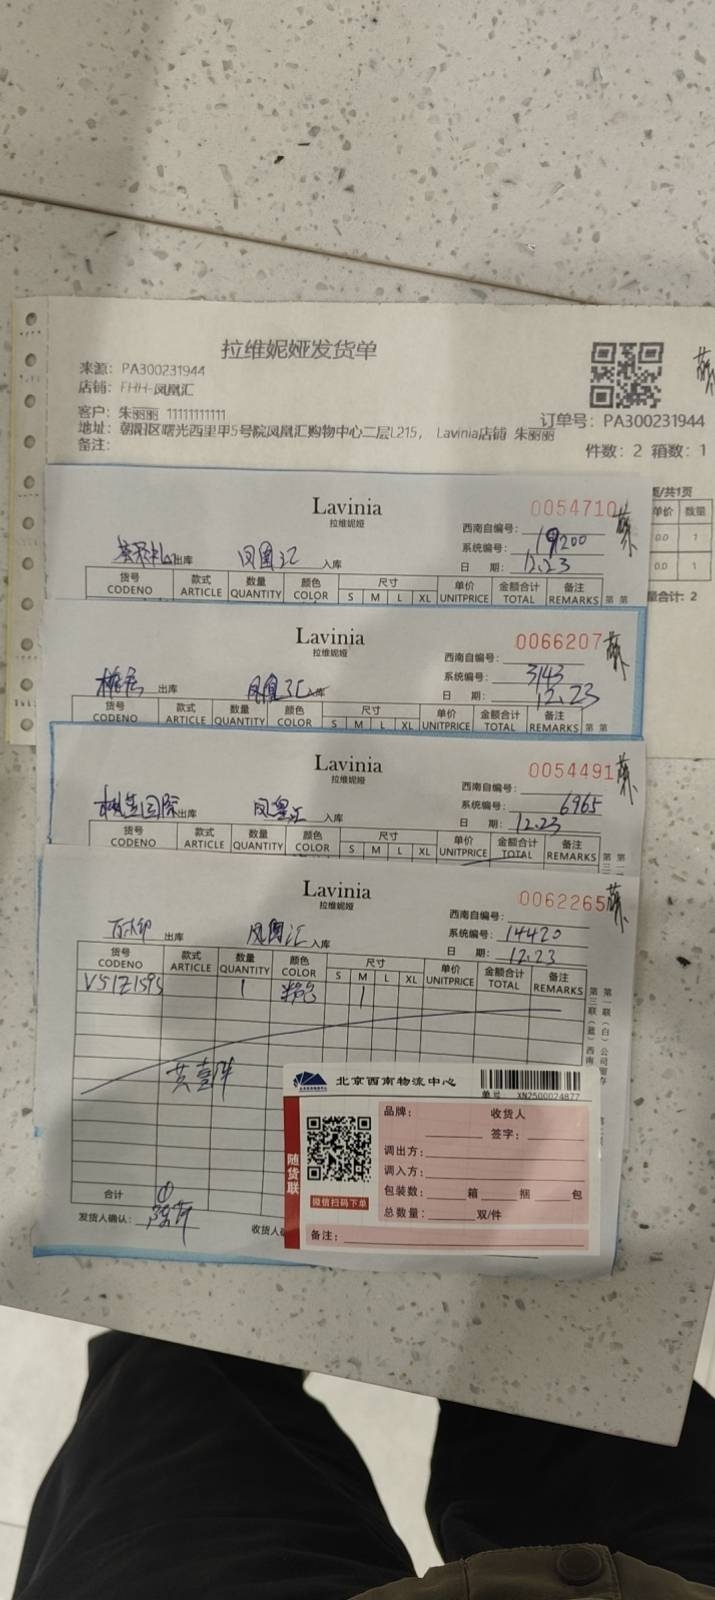 拉维妮娅发货单
来源: PA300231944
店铺: FHH-凤凰汇
客户: 朱丽丽 11111111111
订单号: PA300231944
地址: 朝阳区曙光西里甲5号院凤凰汇购物中心二层L215, Lavinia店铺 朱丽丽
备注:
件数: 2 箱数: 1
页/共1页
单价 数量
0.0 1
0.0 1
量合计: 2
Lavinia
拉维妮娅
0054710
西南自编号:
系统编号: 19200
日 期: 12.23
出库 凤凰汇 入库
货号 款式 数量 颜色 尺寸 单价 金额合计 备注
CODENO ARTICLE QUANTITY COLOR S M L XL UNITPRICE TOTAL REMARKS
第 第
Lavinia
拉维妮娅
0066207
西南自编号:
系统编号: 3143
日 期: 12.23
出库 凤凰汇 入库
货号 款式 数量 颜色 尺寸 单价 金额合计 备注
CODENO ARTICLE QUANTITY COLOR S M L XL UNITPRICE TOTAL REMARKS
第 第
Lavinia
拉维妮娅
0054491
西南自编号:
系统编号: 6965
日 期: 12.23
出库 凤凰汇 入库
货号 款式 数量 颜色 尺寸 单价 金额合计 备注
CODENO ARTICLE QUANTITY COLOR S M L XL UNITPRICE TOTAL REMARKS
Lavinia
拉维妮娅
0062265
西南自编号:
系统编号: 14420
日 期: 12.23
出库 凤凰汇 入库
货号 款式 数量 颜色 尺寸 单价 金额合计 备注
CODENO ARTICLE QUANTITY COLOR S M L XL UNITPRICE TOTAL REMARKS
VS1Z1595 1 1
共壹件
合计 ①
发货人确认:
北京西南物流中心
单号: XN2500024877
随货联
微信扫码下单
品牌: 收货人
签字:
调出方:
调入方:
包装数: 箱 捆 包
总数量: 双/件
备注: